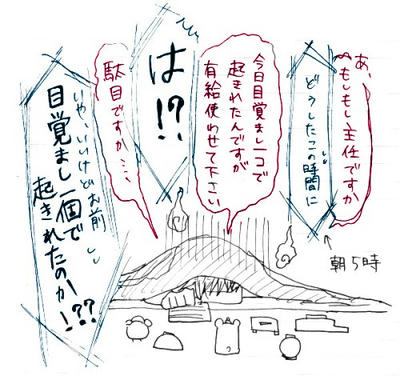 あ、
もしもし主任ですか
どうしたこの時間に
朝5時
今日目覚まし一コで
起きれたんですが
有給使わせて下さい
は!?
駄目ですか…
いや、いいけどお前
目覚まし一個で
起きれたのか!??